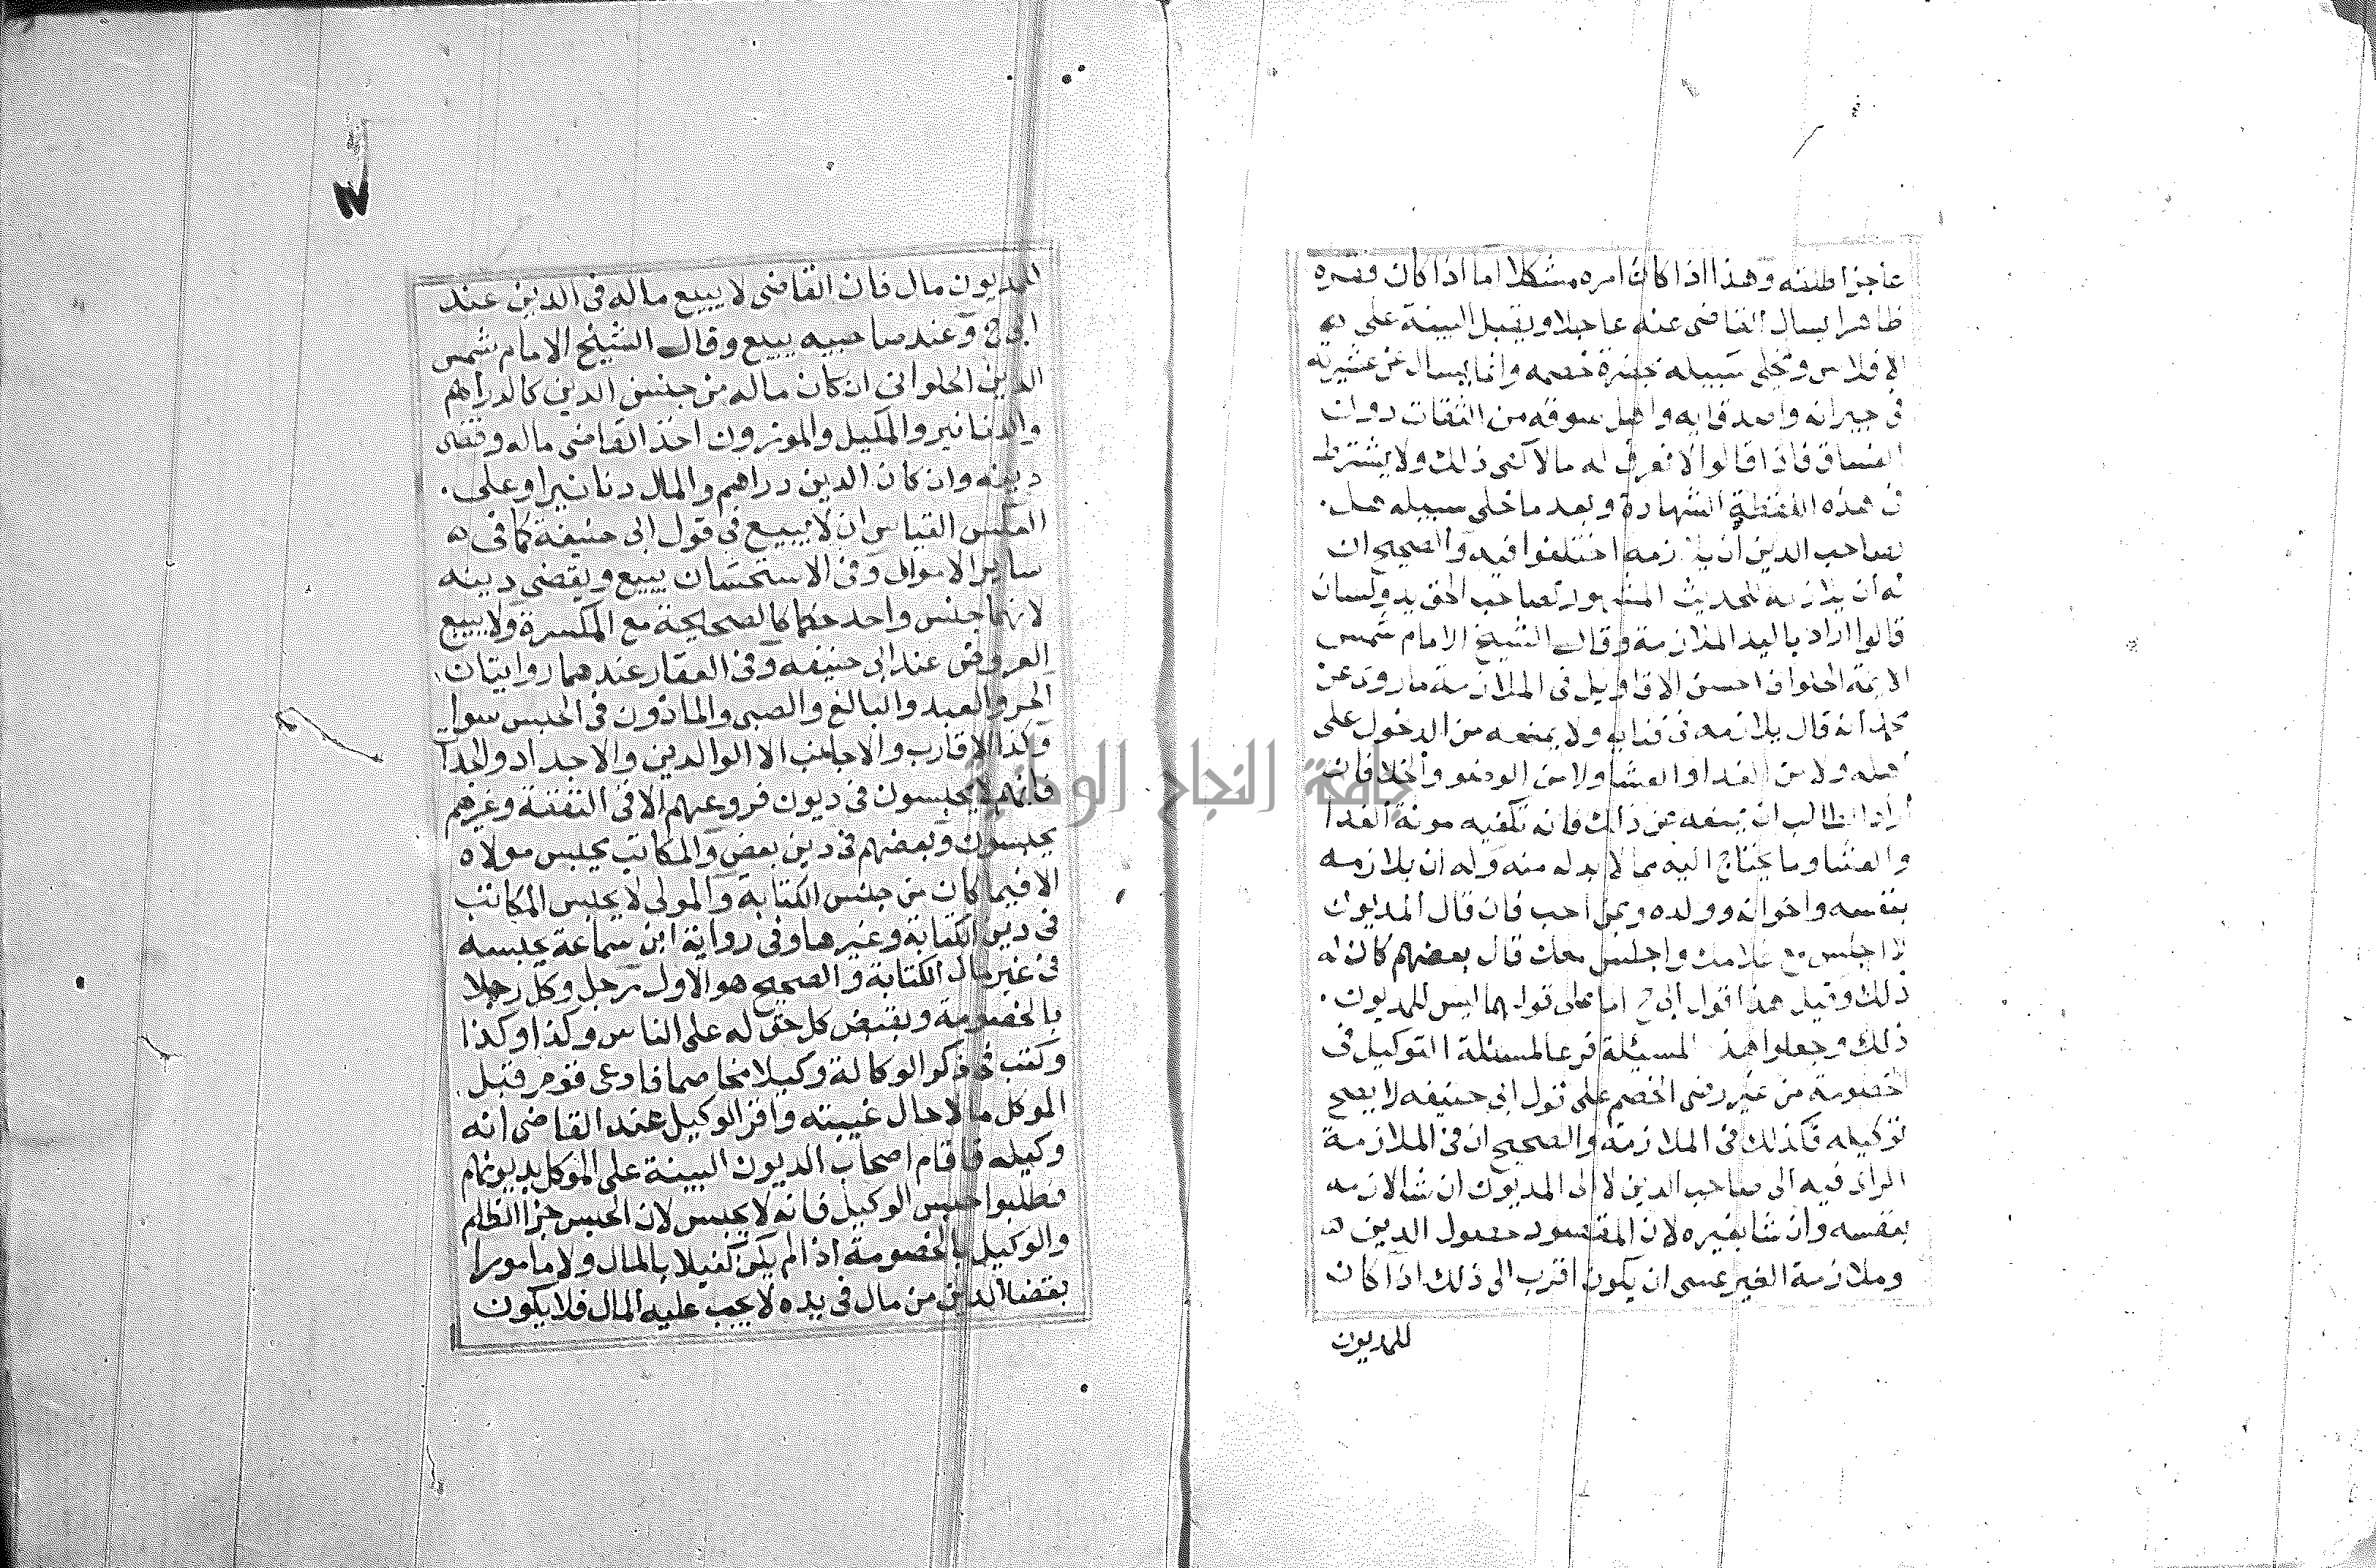 عاجزا طلقه وهذا اذا كان امره مشكلا اما اذا كان فقره
ظاهرا يسال القاضى عنه عاجلا ويقبل البينة على
الافلاس ويخلى سبيله بحضرة خصمه وانما يسال عن عشيرته
فى جيرانه واصدقايه واهل سوقه من الثقات دوان
الفساق فاذا قالوا لا نعرف له مالا كفى ذلك ولا يشترط
فى هذه اللفظة الشهادة وبعد ما خلى سبيله هل
لصاحب الدين ان يلازمه اختلفوا فيه والصحيح ان
له ان يلازمه للحديث المشهور لصاحب الحق يد ولسان
قالوا اراد باليد الملازمة وقال الشيخ الامام شمس
الايمة الحلوانى احسن الاقاويل فى الملازمة ما روى عن
محمد انه قال يلازمه فى فنايه ولا يمنعه من الدخول على
اهله ولا من الغدا والعشا ولا من الوضو والخلا فان
اراد الطالب ان يمنعه عن ذلك فانه تكفيه مونة الغدا
والعشا وما يحتاج اليه مما لا بد له منه وله ان يلازمه
بنفسه واخوانه وولده وبمن احب فان قال المديون
لا اجلس مع غلامك واجلس معك قال بعضهم كان له
ذلك وقيل هذا قول ابى ح اما على قولهما ليس للمديون
ذلك وجعلوا هذ المسيلة فرعا لمسئلة التوكيل فى
الخصومة من غير رضى الخصم على قول ابى حنيفه لا يصح
توكيله فكذلك فى الملازمة والصحيح ان فى الملازمة
الراى فيه الى صاحب الدين لا الى المديون ان شا لازمه
بنفسه وان شا بغيره لان المقصود حصول الدين
وملازمة الغير عسى ان يكون اقرب الى ذلك اذا كان
للمديون
المديون مال فان القاضى لا يبيع ماله فى الدين عند
ابى ح وعند صاحبيه يبيع وقال الشيخ الامام شمس
الدين الحلوانى ان كان ماله من جنس الدين كالدراهم
والدنانير والمكيل والموزون اخذ القاضى ماله وقضى
دينه وان كان الدين دراهم والمال دنانيرا وعلى
العكس القياس ان لا يبيع فى قول ابى حنيفة كما فى
ساير الاموال وفى الاستحسان يبيع ويقضى دينه
لانهما جنس واحد حكما كالصحيحة مع المكسرة ولا يبيع
العروض عند ابى حنيفه وفى العقار عندهما روايتان
الحر والعبد والبالغ والصبى والماذون فى الحبس سوا
وكذا الاقارب والاجانب الا الوالدين والاجداد والجدا
فانهم لا يحبسون فى ديون فروعهم الا فى النفقة وغيرهم
يحبسون وبعضهم فى دين بعض والمكاتب يحبس مولاه
الا فيما كان من جنس الكتابة والمولى لا يحبس المكاتب
فى دين الكتابة وغيرها وفى رواية ابن سماعة يحبسه
فى غير مال الكتابة والصحيح هو الاول رجل وكل رجلا
بالخصومة وبقبض كل حق له على الناس وكذا وكذا
وكتب فى ذكر الوكالة وكيلا مخاصما فادعى قوم قبل
الموكل مالا حال غيبته واقر الوكيل عند القاضى انه
وكيله فاقام اصحاب الديون البينة على الموكل بديونهم
فطلبوا حبس الوكيل فانه لا يحبس لان الحبس جزا الظلم
والوكيل بالخصومة اذا لم يكن كفيلا بالمال ولا مامورا
بقضا الدين من مال فى يده لا يجب عليه المال فلا يكون
جامعة النجاح الوطنية